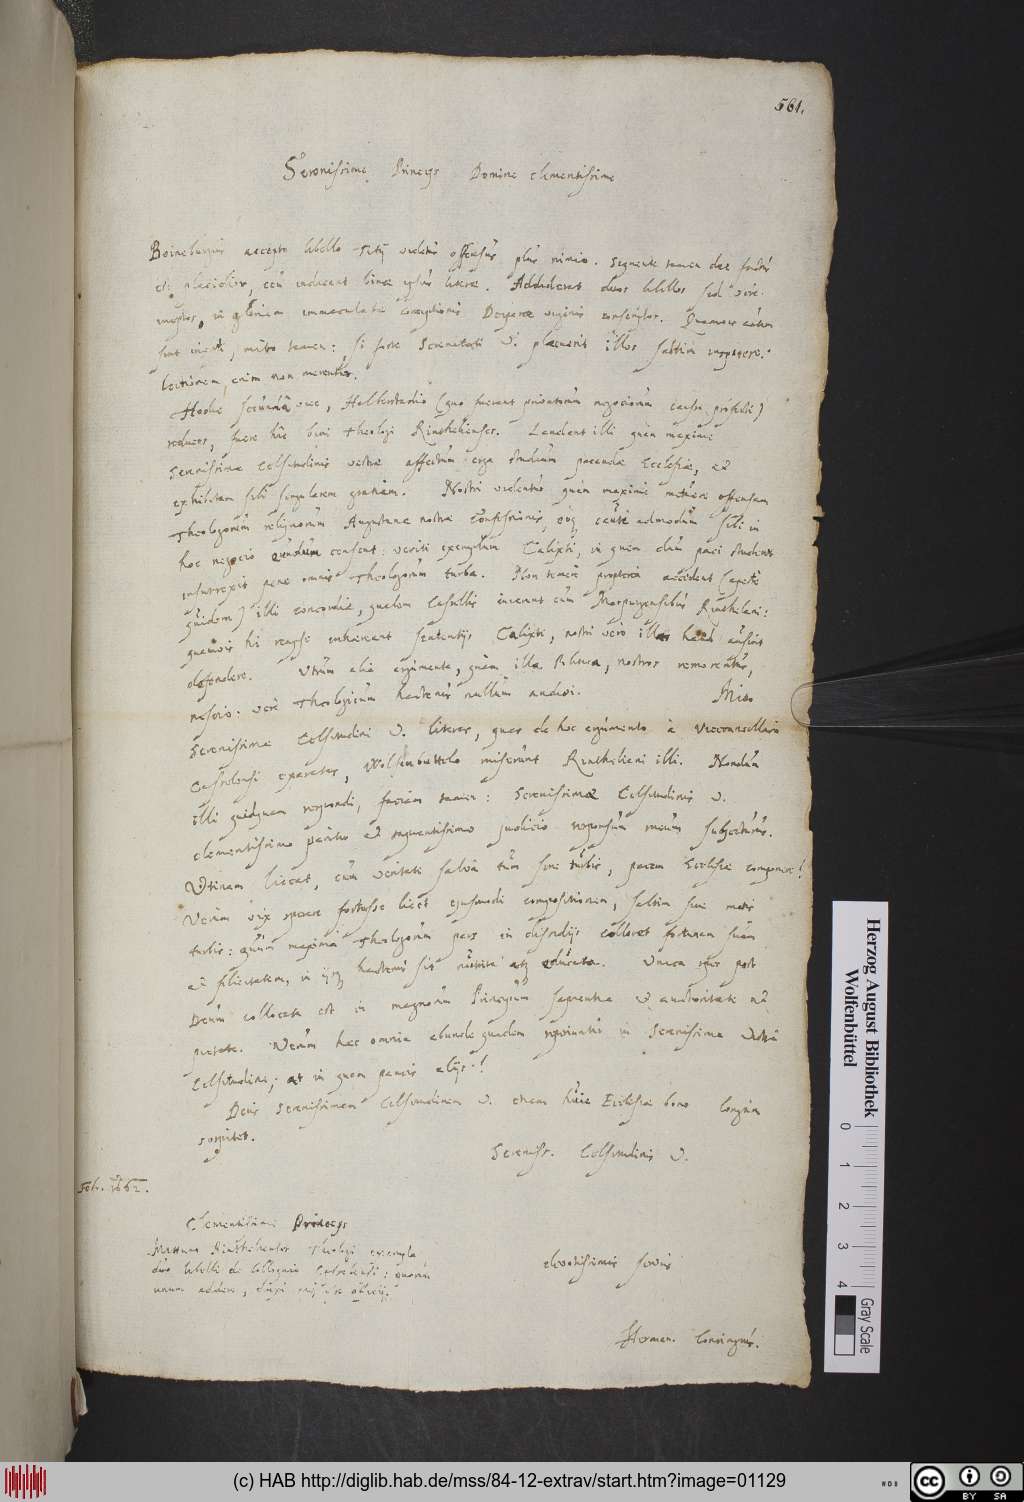 561.
Serenissime Princeps Domine clementissime
Boineburgius accepto libello Titij videtur offensus plus nimio. sequente tamen die factus
est placidior, ceu indicant binae ipsius literae. Addiderat duos libellos sed
in gloriam immaculatae conceptionis Deiparae virginis conscriptos. Quamvis autem
sint inepti, mitto tamen: si forte Serenitati V. placuerit illos saltim inspicere.
lectionem enim non merentur.
Hodie vice, Halberstadio (quo fuerant privatorum negociorum causa profecti)
reduces, fuere hic bini Theologi Rinthelienses. Laudant illi quam maxime
Serenissimae Celsitudinis vestrae affectum erga studium pacandae Ecclesiae, et
exhibitam sibi singularem gratiam. Nostri videntur quam maxime metuere offensam
Theologorum reliquorum Augustanae nostrae Confessionis, eoque caute admodum sibi in
hoc negocio eundum censent: veriti exemplum Calixti, in quem dum paci studeret
insurrexit pene omnis Theologorum turba. Non temere propterea accedent (aperte
quidem) illi concordiae, qualem Cassellis inierunt cum Marpurgensibus Rinthelani:
quamvis hi reapse inhaereant sententijs Calixti, nostri vero illas haud ausint
defendere. Utrum alia argumenta, quam illa nostros remorentur,
nescio: vere Theologicum hactenus nullum audivi. Mitto
Serenissimae Celsitudini V. literas, quas de hoc argumento à Vicecancellario
Casselensi exaratas, Wolfenbuttelo miserunt Rinthelieni illi. Nondum
illi quidquam respondi, faciam tamen: Serenissimae Celsitudinis V.
clementissimo pariter et sapientissimo judicio responsum meum subjecturus.
Utinam liceat, cum veritate salva tum sine turbis, pacem Ecclesiae componere!
Verum vix sperare fortasse licet ejusmodi compositionem, saltim sine motis
turbis: quum maxima Theologorum pars in dissidijs collocet fortunam suam
et felicitatem, in ijsque hactenus sit nutrita atque educata. Unica spes post
Deum collocata est in magnorum Principum sapientia et authoritate ac
pietate. Verum haec omnia abunde quadam reperiuntur in Serenissima Vestra
Celsitudine; at in quam paucis alijs!
Deus Serenissimam Celsitudinem V. etiam huic Ecclesiae bono longum
sospitet.
Sereniss. Celsitudinis V.
Feb. 1662.
Clementissime Princeps
Rinthelienses Theologi exempla
duo libelli de Colloquio Casselensi: quorum
unum addere,
devotissimus servus
Herman. Conringius.
Herzog August Bibliothek
Wolfenbüttel
0 1 2 3 4
Gray Scale
(c) HAB http://diglib.hab.de/mss/84-12-extrav/start.htm?image=01129
WDB
cc BY SA